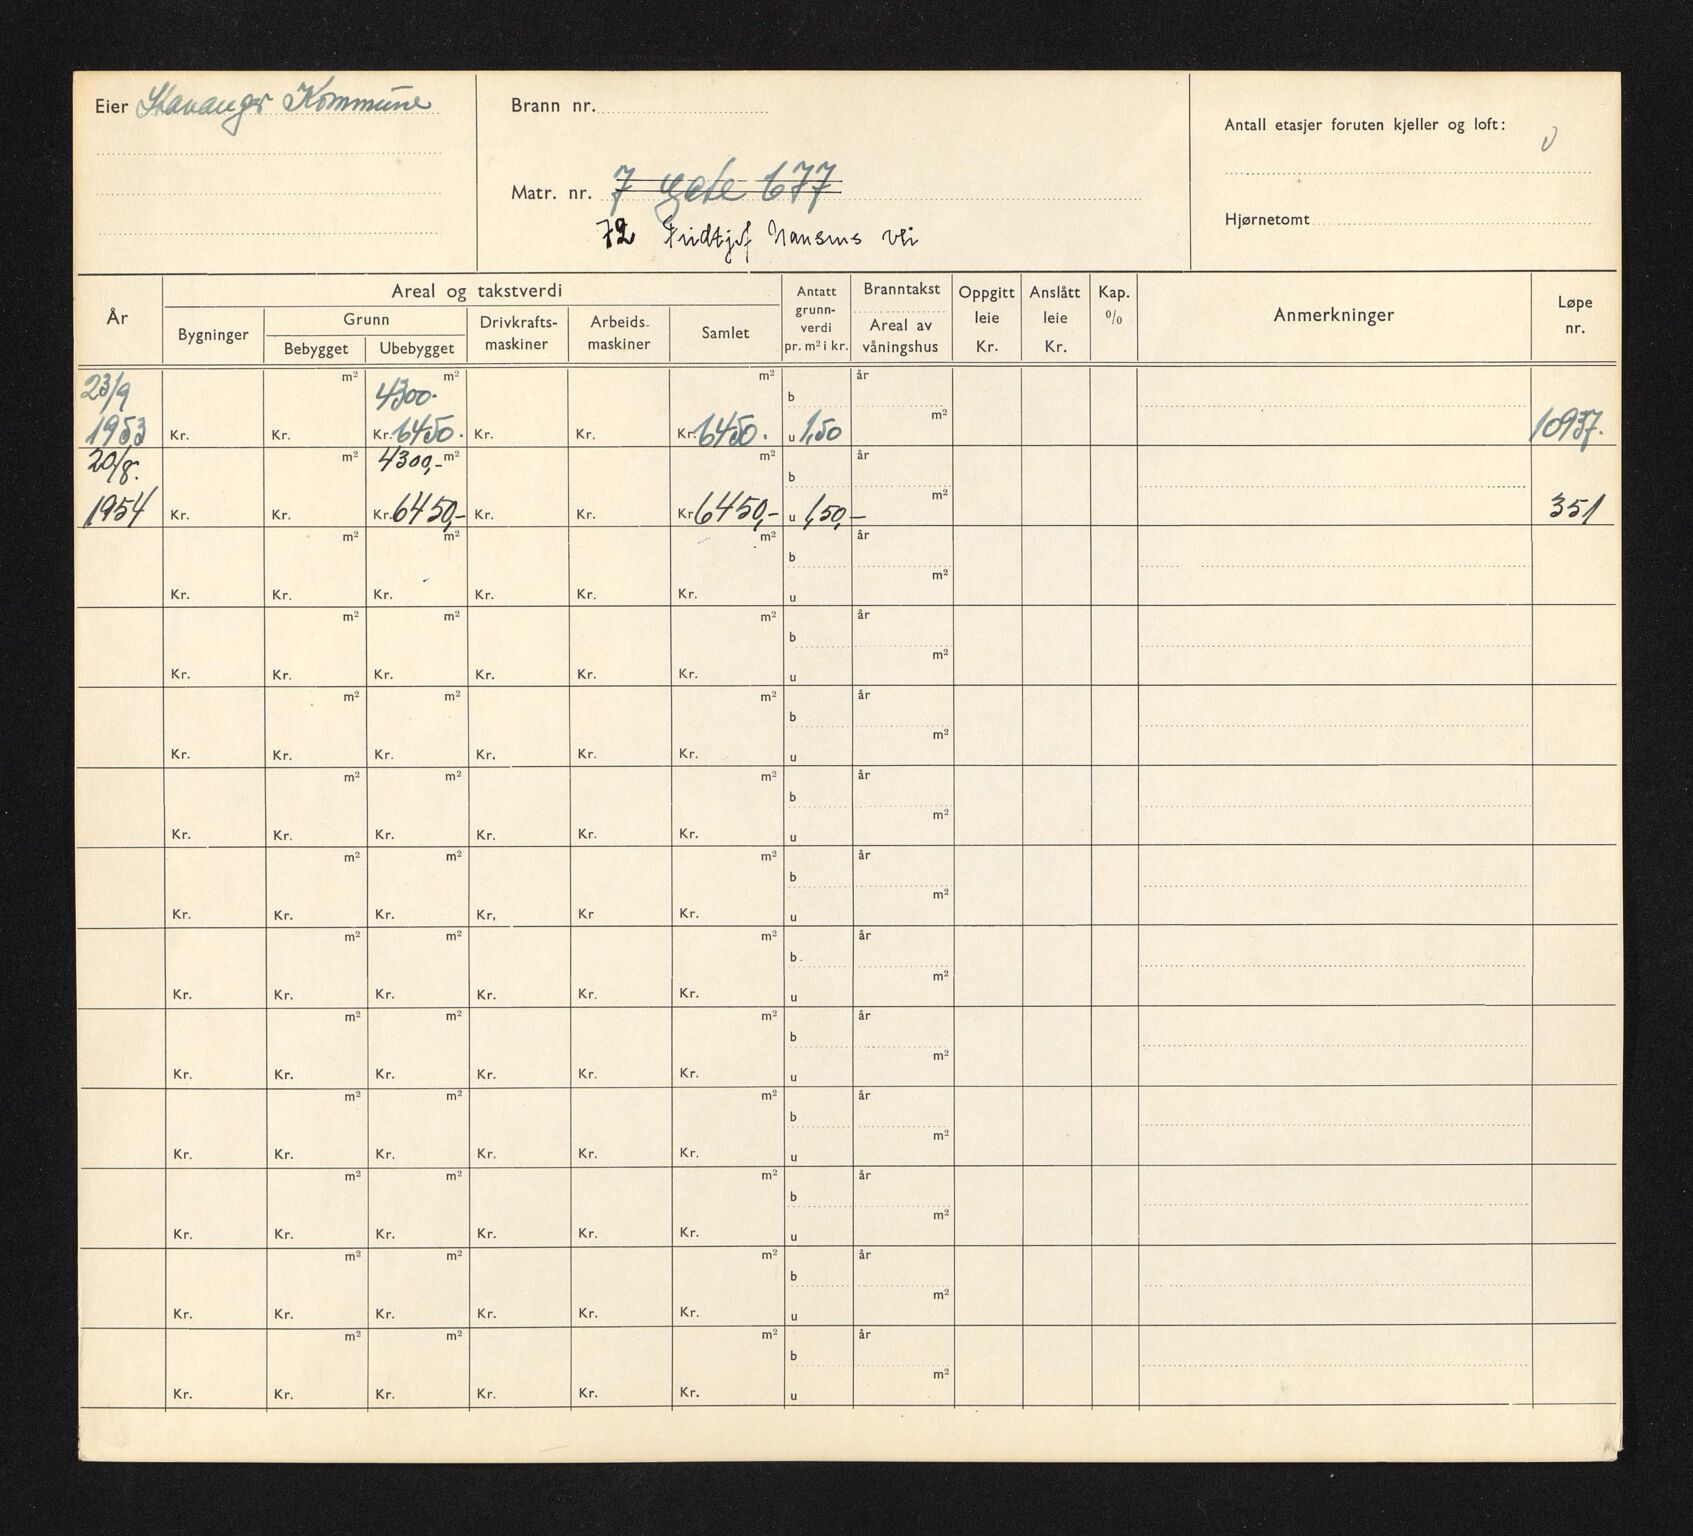 Eier Stavanger Kommune
Brann nr.
Antall etasjer foruten kjeller og loft: 0
Matr. nr. 7 gate 677
72 Fridtjof Nansens vei
Hjørnetomt
År
Areal og takstverdi
Bygninger
Grunn
Bebygget Ubebygget
Drivkrafts-
maskiner
Arbeids-
maskiner
Samlet
Antatt
grunn-
verdi
pr. m² i kr.
Branntakst
Areal av
våningshus
Oppgitt
leie
Kr.
Anslått
leie
Kr.
Kap.
%
Anmerkninger
Løpe
nr.
23/9 m² 4300. m² m² b år
1953 Kr. Kr. Kr. 6450. Kr. Kr. Kr. 6450. u 1,50 m² 10937.
20/8. m² 4300,- m² m² b år
1954 Kr. Kr. Kr. 6450,- Kr. Kr. Kr 6450,- u 1,50,- m² 351
m² m² m² b år
Kr. Kr. Kr. Kr. Kr. Kr. u m²
m² m² m² b år
Kr. Kr. Kr. Kr. Kr. Kr. u m²
m² m² m² b år
Kr. Kr. Kr. Kr. Kr. Kr. u m²
m² m² m² b år
Kr. Kr. Kr. Kr. Kr. Kr. u m²
m² m² m² b år
Kr. Kr. Kr. Kr. Kr Kr. u m²
m² m² m² b år
Kr. Kr. Kr. Kr. Kr. Kr. u m²
m² m² m² b år
Kr. Kr. Kr. Kr. Kr. Kr. u m²
m² m² m² b år
Kr. Kr. Kr. Kr. Kr. Kr. u m²
m² m² m² b år
Kr. Kr. Kr. Kr. Kr. Kr. u m²
m² m² m² b år
Kr. Kr. Kr. Kr. Kr. Kr. u m²
m² m² m² b år
Kr. Kr. Kr. Kr. Kr. Kr. u m²